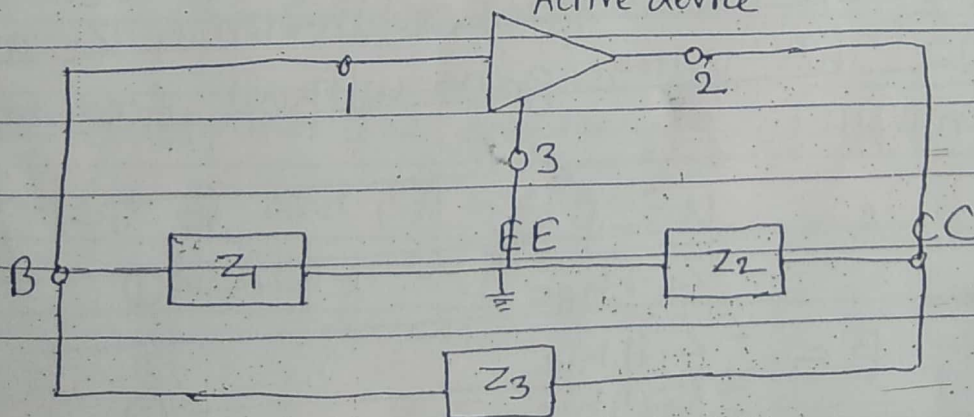 Active device
1
2
3
E E C C
B Z1 Z2
Z3